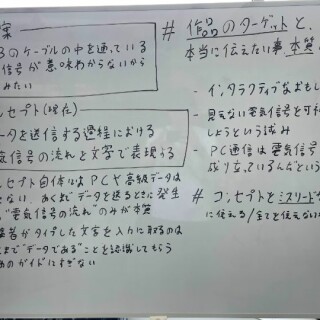 案
るのケーブルの中を通っている
信号が意味わからないから
みたい
ンセプト(現在)
ータを送信する過程における
気信号の流れを文字で表現する
セプト自体はPCや高級データは
せない、あくまでデータを送るときに発生
"電気信号の流れ"のみが本質
がタイプした文言を入力に取るのは
まで"データである"ことを認識してもらう
めのガイドにすぎない
# 作品のターゲットと、
本当に伝えたい事 本質
- インタラクティブなおもし
- 見えない電気信号を可
しようという試み
- PC通信は電気信号
成り立っているんという
# コンセプトとミスリード
に伝える/全てを伝えない